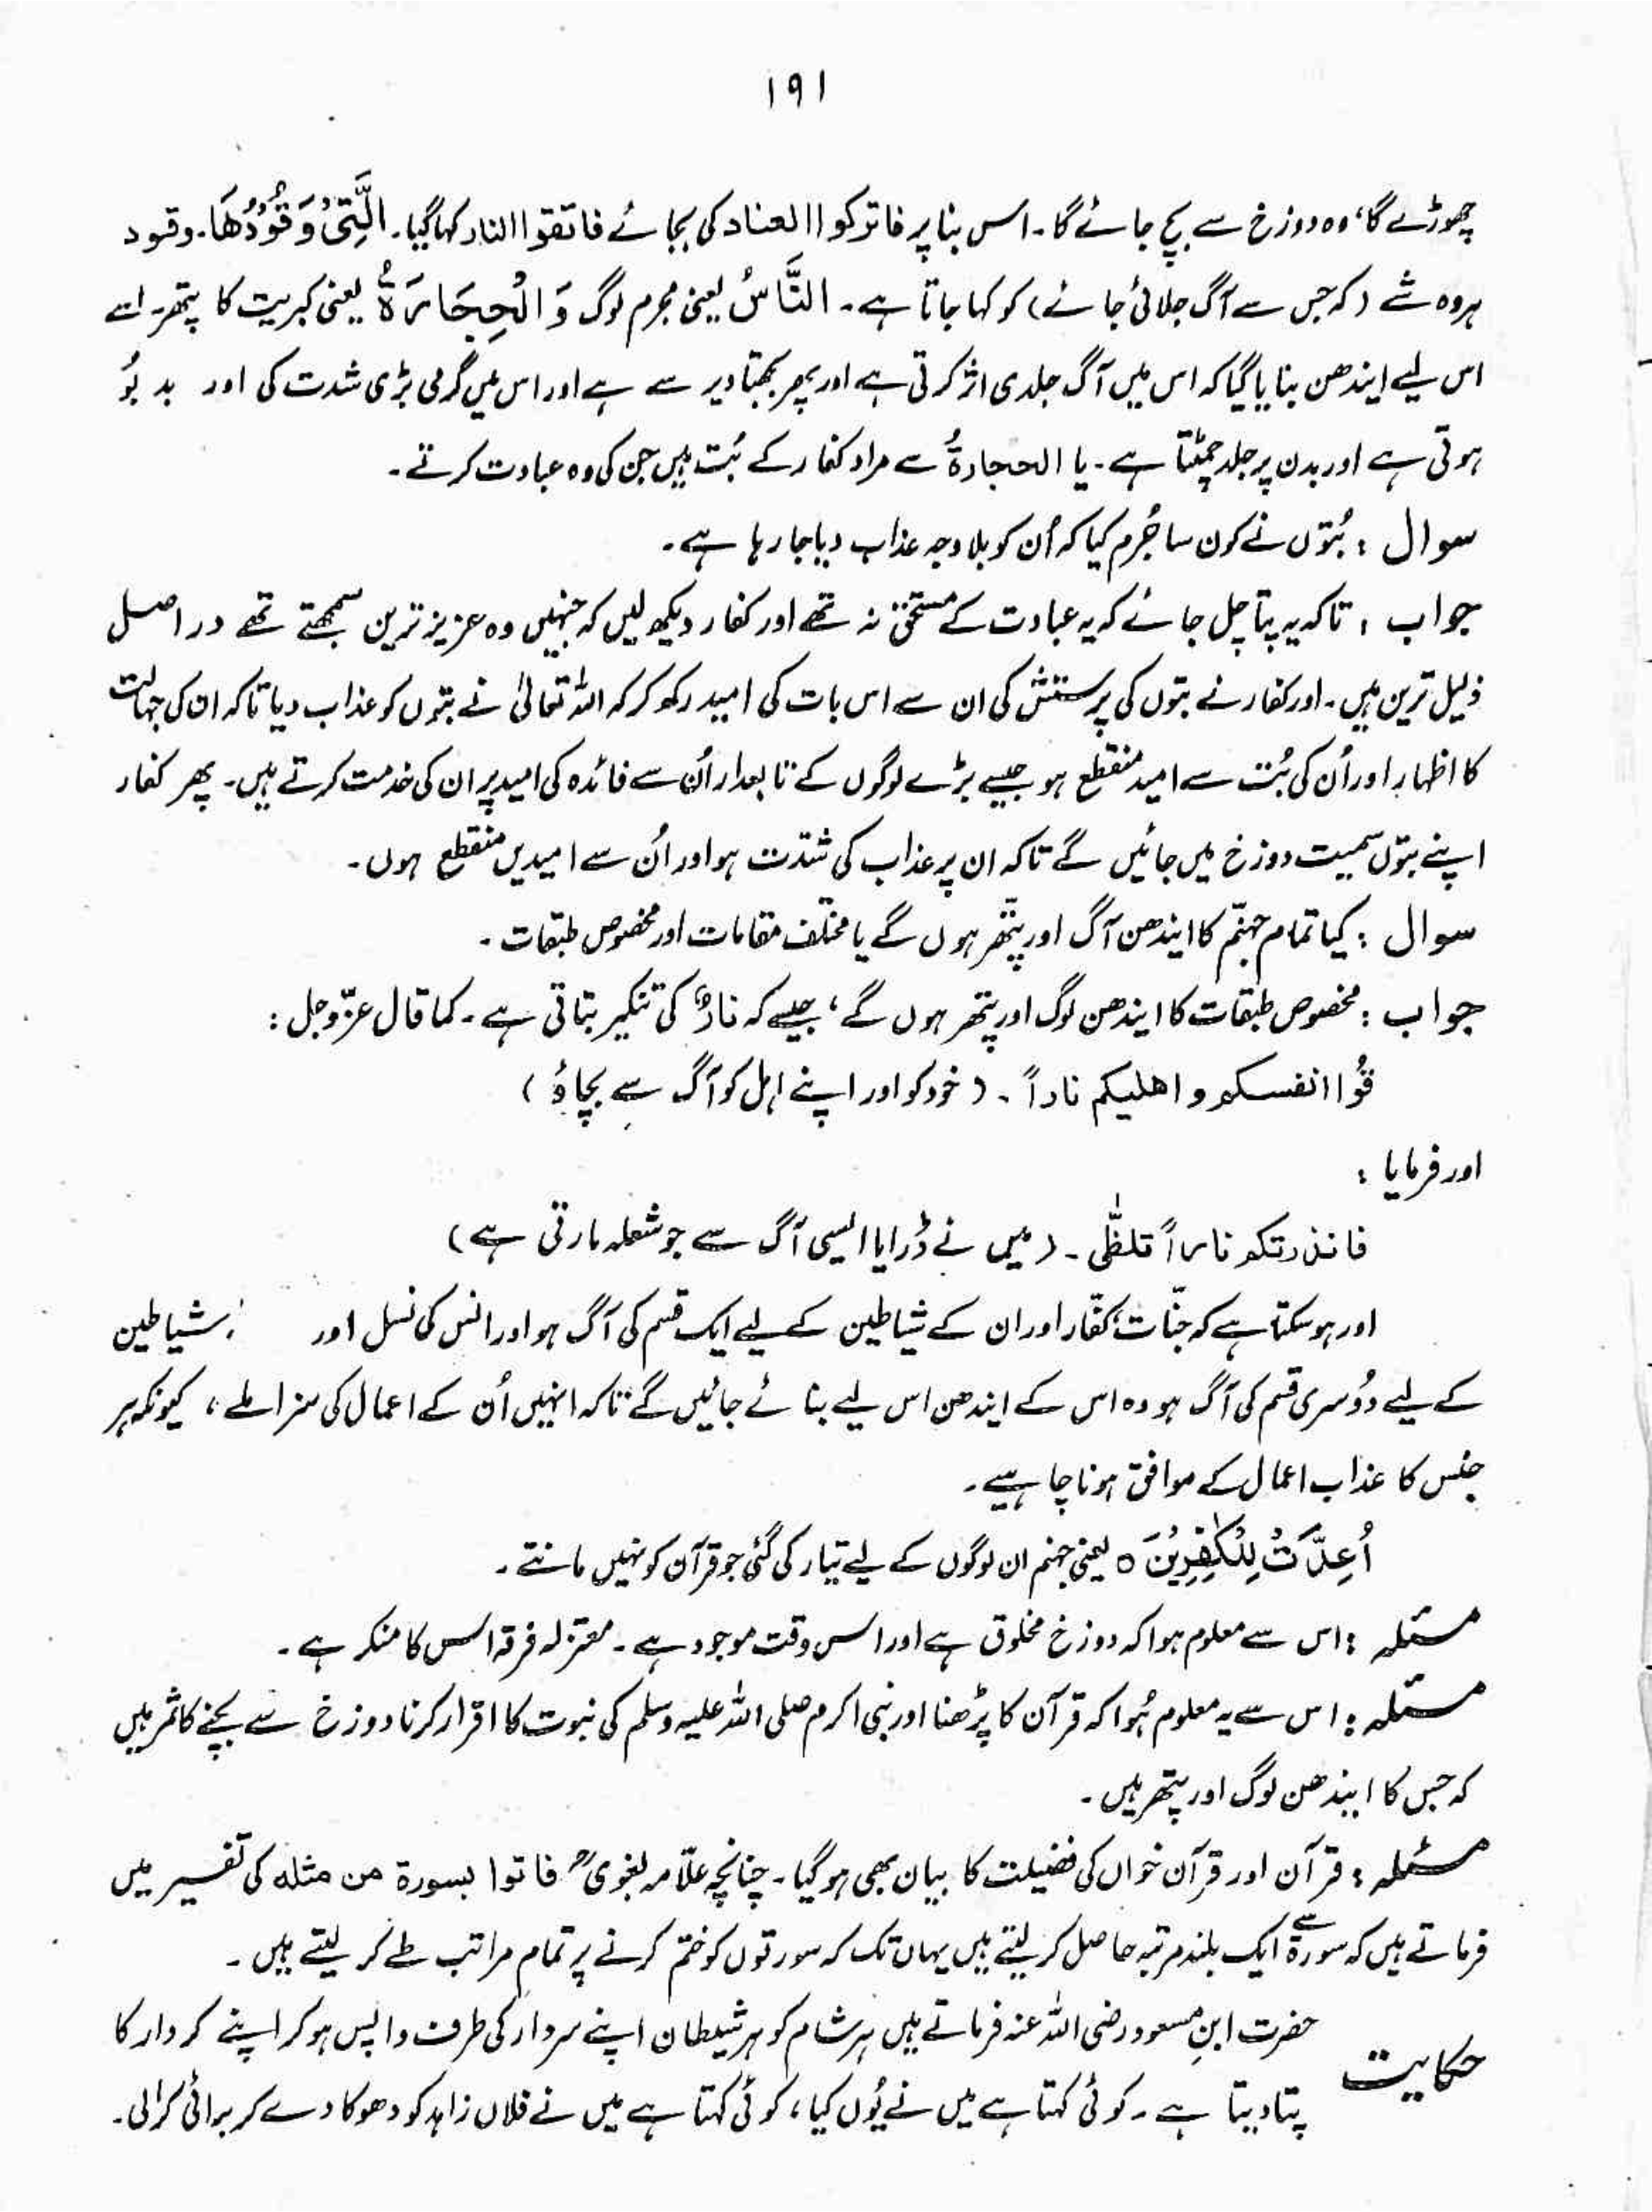 ۱۹۱
چھوڑے گا، وہ دوزخ سے بچ جائے گا۔ اس بنا پر فاترکوا العناد کی بجائے فاتقوا النار کہا گیا۔ الَّتِیْ وَقُوْدُهَا۔ وقود
ہر وہ شے (کہ جس سے آگ جلائی جائے) کو کہا جاتا ہے۔ النَّاسُ یعنی مجرم لوگ وَالْحِجَارَةُ یعنی کبریت کا پتھر۔ اسے
اس لیے ایندھن بنایا گیا کہ اس میں آگ جلدی اثر کرتی ہے اور پھر بجھتا دیر سے ہے اور اس میں گرمی بڑی شدت کی اور بد بُو
ہوتی ہے اور بدن پر جلد چمٹتا ہے۔ یا الحجارۃُ سے مراد کفار کے بُت ہیں جن کی وہ عبادت کرتے۔
سوال : بُتوں نے کون سا جُرم کیا کہ اُن کو بلا وجہ عذاب دیا جا رہا ہے۔
جواب : تاکہ یہ پتا چل جائے کہ یہ عبادت کے مستحق نہ تھے اور کفار دیکھ لیں کہ جنہیں وہ عزیز ترین سمجھتے تھے در اصل
ذلیل ترین ہیں۔ اور کفار نے بتوں کی پرستش کی ان سے اس بات کی امید رکھ کر کہ اللہ تعالیٰ نے بتوں کو عذاب دیا تاکہ ان کی جہالت
کا اظہار اور اُن کی بُت سے امید منقطع ہو جیسے بڑے لوگوں کے تابعدار اُن سے فائدہ کی امید پر ان کی خدمت کرتے ہیں۔ پھر کفار
اپنے بتوں سمیت دوزخ میں جائیں گے تاکہ ان پر عذاب کی شدّت ہو اور اُن سے امیدیں منقطع ہوں۔
سوال : کیا تمام جہنّم کا ایندھن آگ اور پتّھر ہوں گے یا مختلف مقامات اور مخصوص طبقات۔
جواب : مخصوص طبقات کا ایندھن لوگ اور پتھر ہوں گے، جیسے کہ نارٌ کی تنکیر بتاتی ہے۔ کما قال عزّ وجل :
قُوا انفسکم و اھلیکم ناراً۔ (خود کو اور اپنے اہل کو آگ سے بچاؤ)
اور فرمایا :
فانذرتکم ناراً تلظّٰی۔ (میں نے ڈرایا ایسی آگ سے جو شعلہ مارتی ہے)
اور ہو سکتا ہے کہ جنّات کفّار اور ان کے شیاطین کے لیے ایک قسم کی آگ ہو اور انس کی نسل اور شیاطین
کے لیے دُوسری قسم کی آگ ہو وہ اس کے ایندھن اس لیے بنائے جائیں گے تاکہ انہیں اُن کے اعمال کی سزا ملے، کیونکہ ہر
جنس کا عذاب اعمال کے موافق ہونا چاہیے۔
اُعِدَّتْ لِلْكٰفِرِيْنَ ۵ یعنی جہنم ان لوگوں کے لیے تیار کی گئی جو قرآن کو نہیں مانتے۔
مسئلہ : اس سے معلوم ہوا کہ دوزخ مخلوق ہے اور اس وقت موجود ہے۔ معتزلہ فرقہ اس کا منکر ہے۔
مسئلہ : اس سے یہ معلوم ہُوا کہ قرآن کا پڑھنا اور نبی اکرم صلی اللہ علیہ وسلم کی نبوت کا اقرار کرنا دوزخ سے بچنے کا ثمر ہیں
کہ جس کا ایندھن لوگ اور پتھر ہیں۔
مسئلہ : قرآن اور قرآن خواں کی فضیلت کا بیان بھی ہو گیا۔ چنانچہ علّامہ بغویؒ فاتوا بسورة من مثلہ کی تفسیر میں
فرماتے ہیں کہ سورۃ سے ایک بلند مرتبہ حاصل کر لیتے ہیں یہاں تک کہ سورتوں کو ختم کرنے پر تمام مراتب طے کر لیتے ہیں۔
حکایت حضرت ابنِ مسعود رضی اللہ عنہ فرماتے ہیں ہر شام کو ہر شیطان اپنے سردار کی طرف واپس ہو کر اپنے کردار کا
پتا دیتا ہے۔ کوئی کہتا ہے میں نے یُوں کیا، کوئی کہتا ہے میں نے فلاں زاہد کو دھوکا دے کر برائی کرالی۔